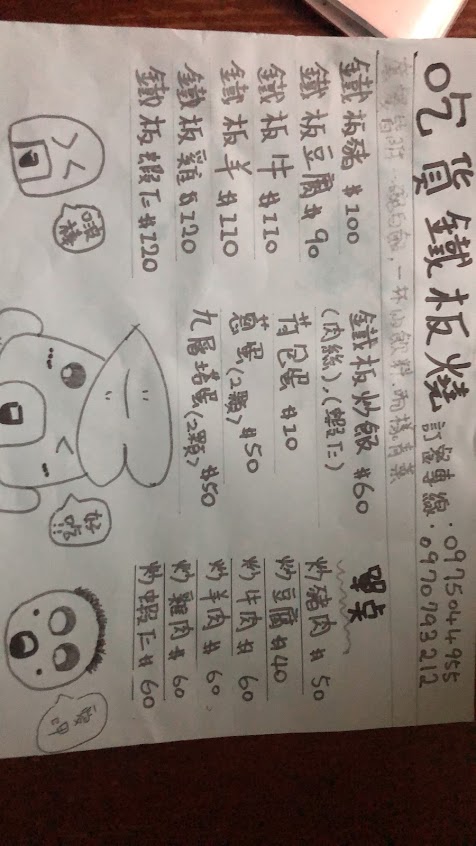 吃貨鐵板燒 訂餐專線:0975044955
0970793212
套餐皆附一碗白飯,一杯的飲料,兩樣青菜
鐵板豬 $100
鐵板豆腐 $90
鐵板牛 $110
鐵板羊 $110
鐵板雞 $120
鐵板蝦仁 $120
鐵板炒飯 $60
(肉絲),(蝦仁)
荷包蛋 $10
蔥蛋(2顆) $50
九層塔蛋(2顆) $50
單點
炒豬肉 $50
炒豆腐 $40
炒牛肉 $60
炒羊肉 $60
炒雞肉 $60
炒蝦仁 $60
好吃!!!